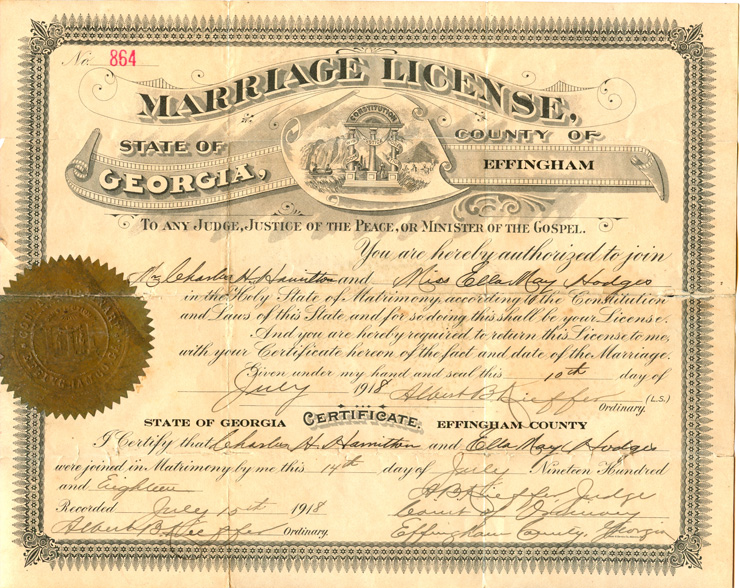 No. 864
MARRIAGE LICENSE,
CONSTITUTION
STATE OF GEORGIA,
COUNTY OF EFFINGHAM
TO ANY JUDGE, JUSTICE OF THE PEACE, OR MINISTER OF THE GOSPEL.
You are hereby authorized to join
Mr Charles H. Hamilton and Miss Ella May Hodges
in the Holy State of Matrimony, according to the Constitution
and Laws of this State and for so doing this shall be your License.
And you are hereby required to return this License to me,
with your Certificate hereon of the fact and date of the Marriage.
Given under my hand and seal this 10th day of
July 1918 Albert B Kieffer (L.S.)
Ordinary.
STATE OF GEORGIA CERTIFICATE. EFFINGHAM COUNTY
I Certify that Charles H. Hamilton and Ella May Hodges
were joined in Matrimony by me this 14th day of July Nineteen Hundred
and Eighteen A B Kieffer, Judge
Recorded July 15th 1918 Court of Ordinary
Albert B. Kieffer Ordinary. Effingham County, Georgia